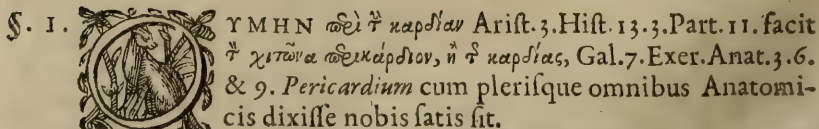 §. I. ΥΜΗΝ περὶ τ καρδίαν Arist. 3. Hist. 13. 3. Part. 11. facit
τ χιτῶνα περικάρδιον, ἢ τ καρδίας, Gal. 7. Exer. Anat. 3. 6.
& 9. Pericardium cum plerisque omnibus Anatomi-
cis dixisse nobis satis sit.